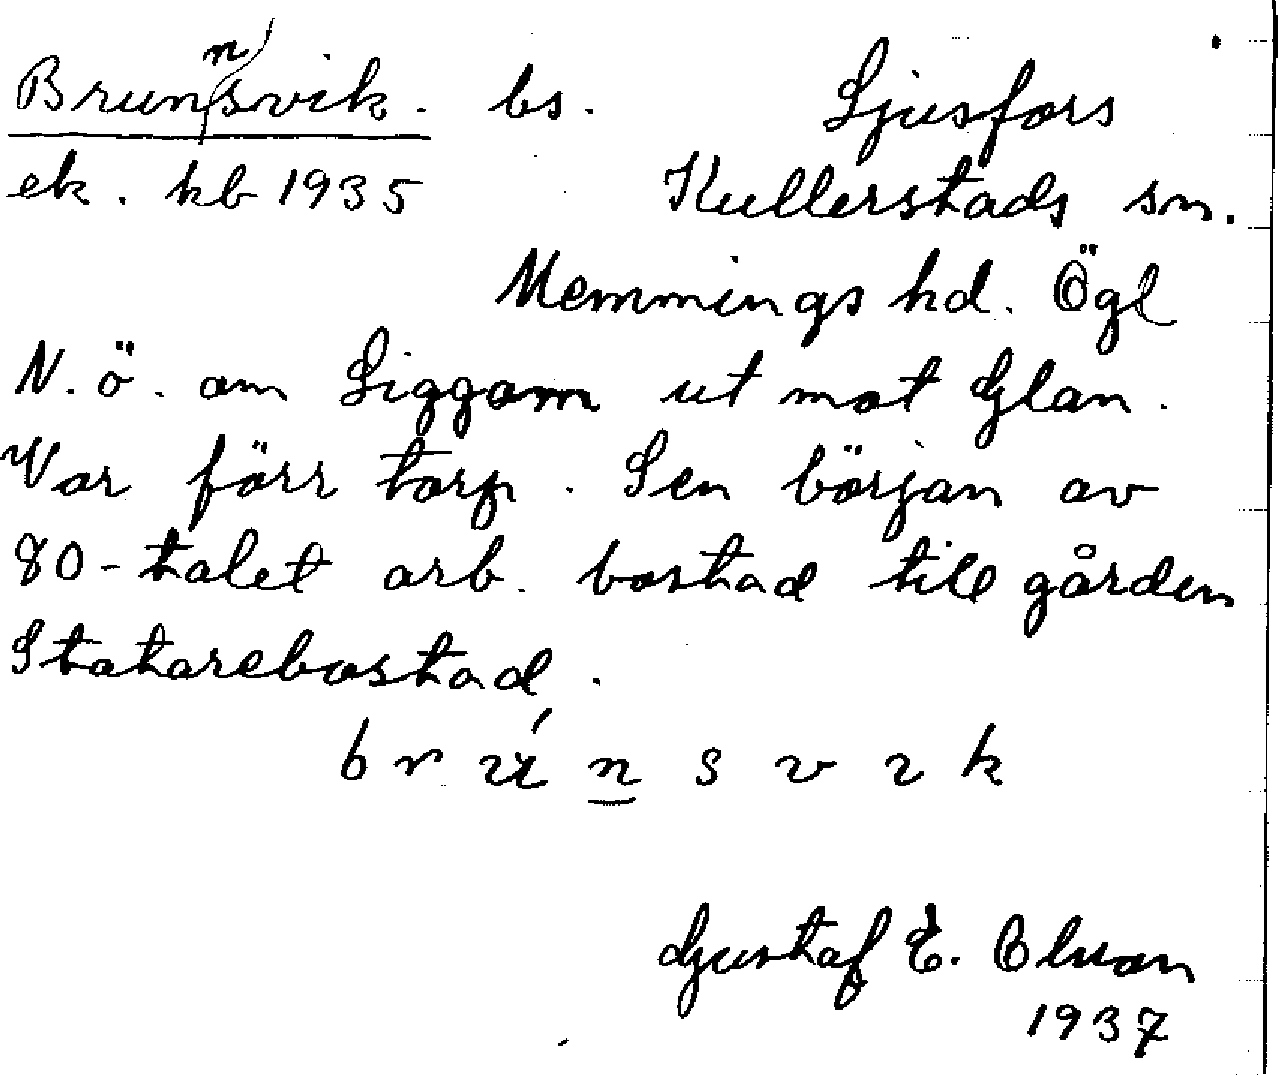 Brunnsvik. bs. Ljusfors
ek. kb 1935 Kullerstads sn.
Memmings hd. Ögl
N. ö. om Liggom ut mot Glan.
Var förr torp. Sen början av
80-talet arb. bostad till gården
Statarebostad.
brúnsvik
Gustaf E. Olsson
1937